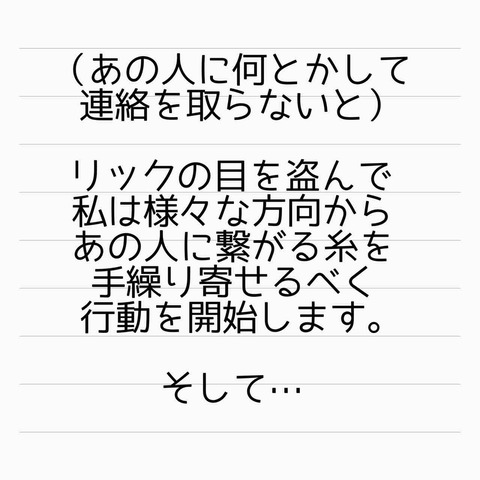 （あの人に何とかして
連絡を取らないと）
リックの目を盗んで
私は様々な方向から
あの人に繋がる糸を
手繰り寄せるべく
行動を開始します。
そして…